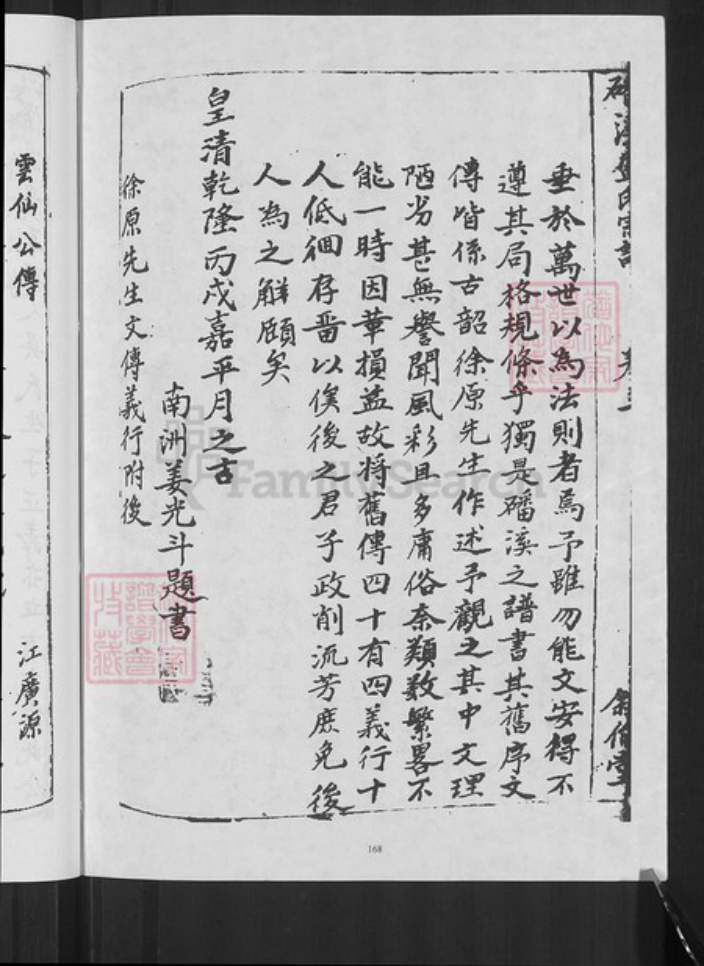 垂於萬世以為法則者焉予雖勿能文安得不
遵其局格規條乎獨是磻溪之譜書其舊序文
傳皆係古韶徐原先生作述予觀之其中文理
陋劣甚無譽聞風彩且多庸俗奈類數繁畧不
能一時因革損益故將舊傳四十有四義行十
人低徊存畱以俟後之君子政削流芳庶免後
人為之觧頤矣
皇清乾隆丙戌嘉平月之吉
南洲姜光斗題書
徐原先生文傳義行附後
雲仙公傳
江廣源
FamilySearch
168